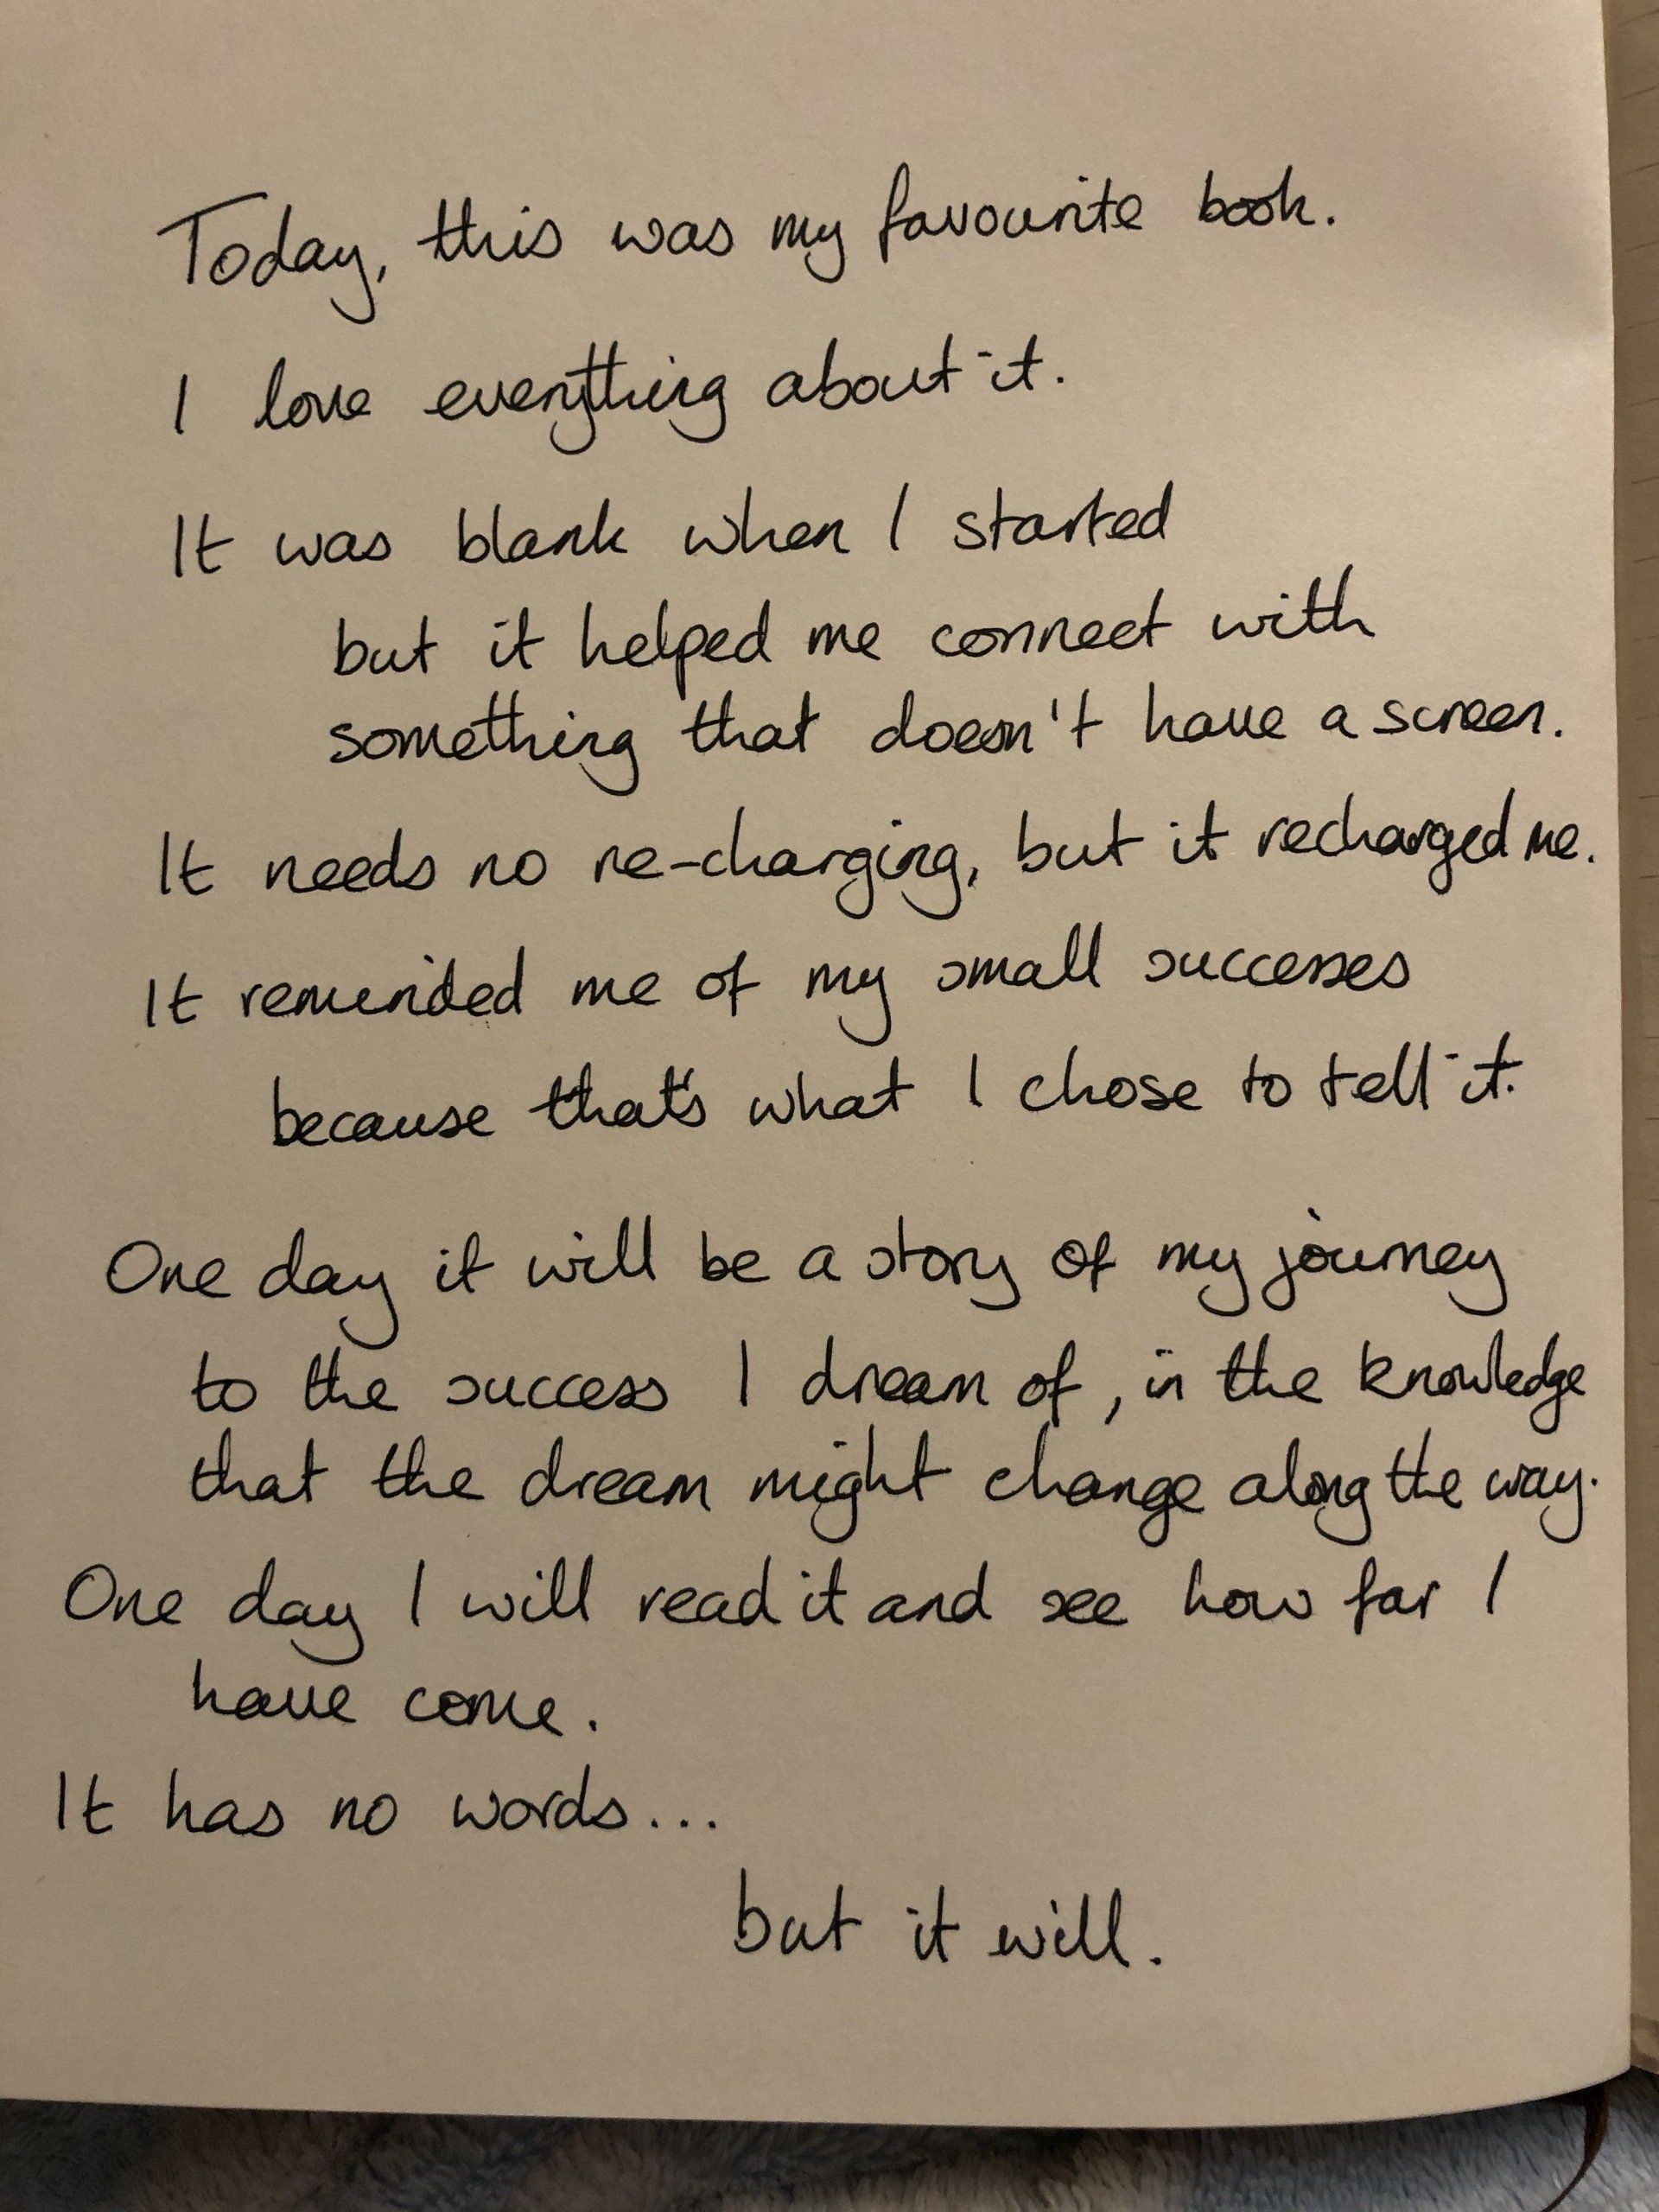 Today, this was my favourite book.
I love everything about it.
It was blank when I started
but it helped me connect with
something that doesn't have a screen.
It needs no re-charging, but it recharged me.
It reminded me of my small successes
because that's what I chose to tell it.
One day it will be a story of my journey
to the success I dream of, in the knowledge
that the dream might change along the way.
One day I will read it and see how far I
have come.
It has no words...
but it will.